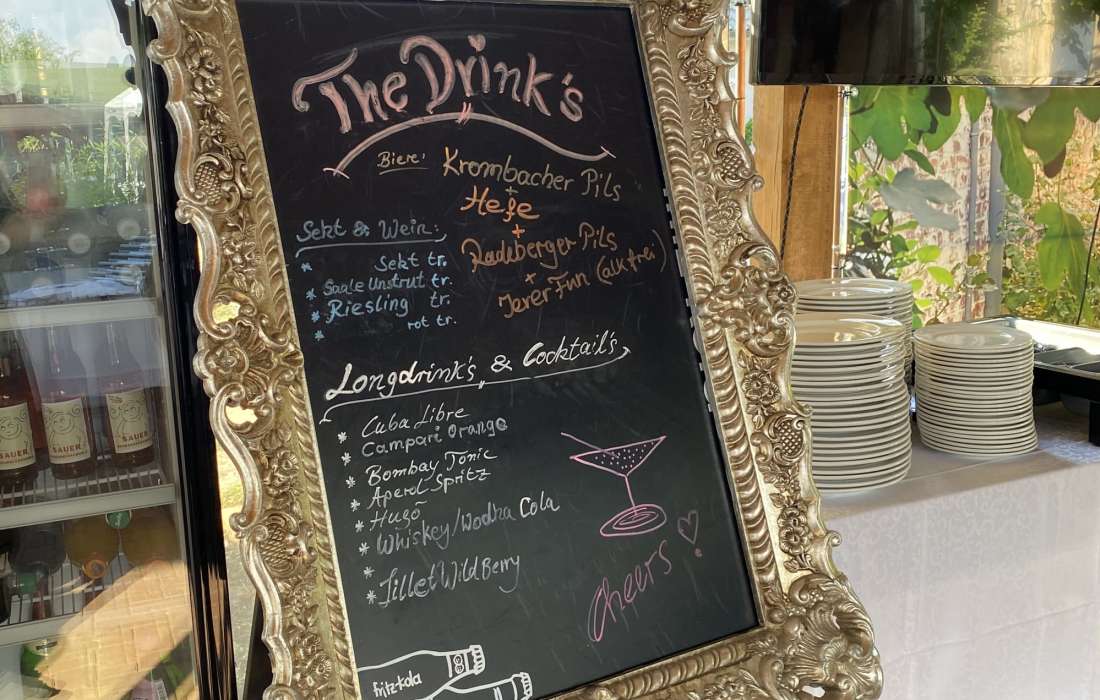 The Drink's
Biere: Krombacher Pils
+
Hefe
+
Radeberger Pils
+
Jever Fun (alkfrei)
Sekt & Wein:
* Sekt tr.
* Saale Unstrut tr.
* Riesling tr.
* rot tr.
Longdrink's & Cocktail's
* Cuba Libre
* Campari Orange
* Bombay Tonic
* Aperol Spritz
* Hugo
* Whiskey/Wodka Cola
* Lillet Wild Berry
Cheers!
fritz-kola
SAUER
SAUER
SAUER
fritz